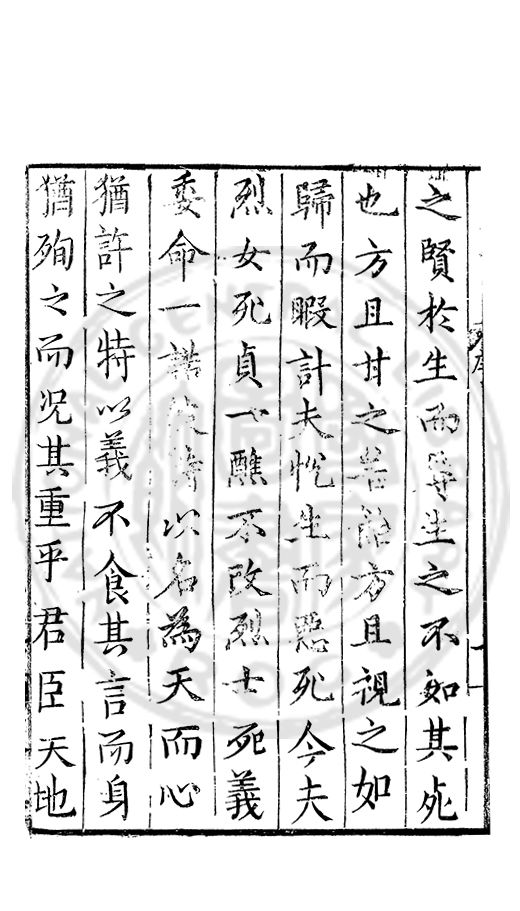 之賢於生而辱生之不如其死
也方且甘之若飴方且視之如
歸而暇計夫悅生而惡死今夫
烈女死貞一醮不改烈士死義
委命一諾彼以名為天而心
猶許之特以義不食其言而身
猶殉之而况其重乎君臣天地